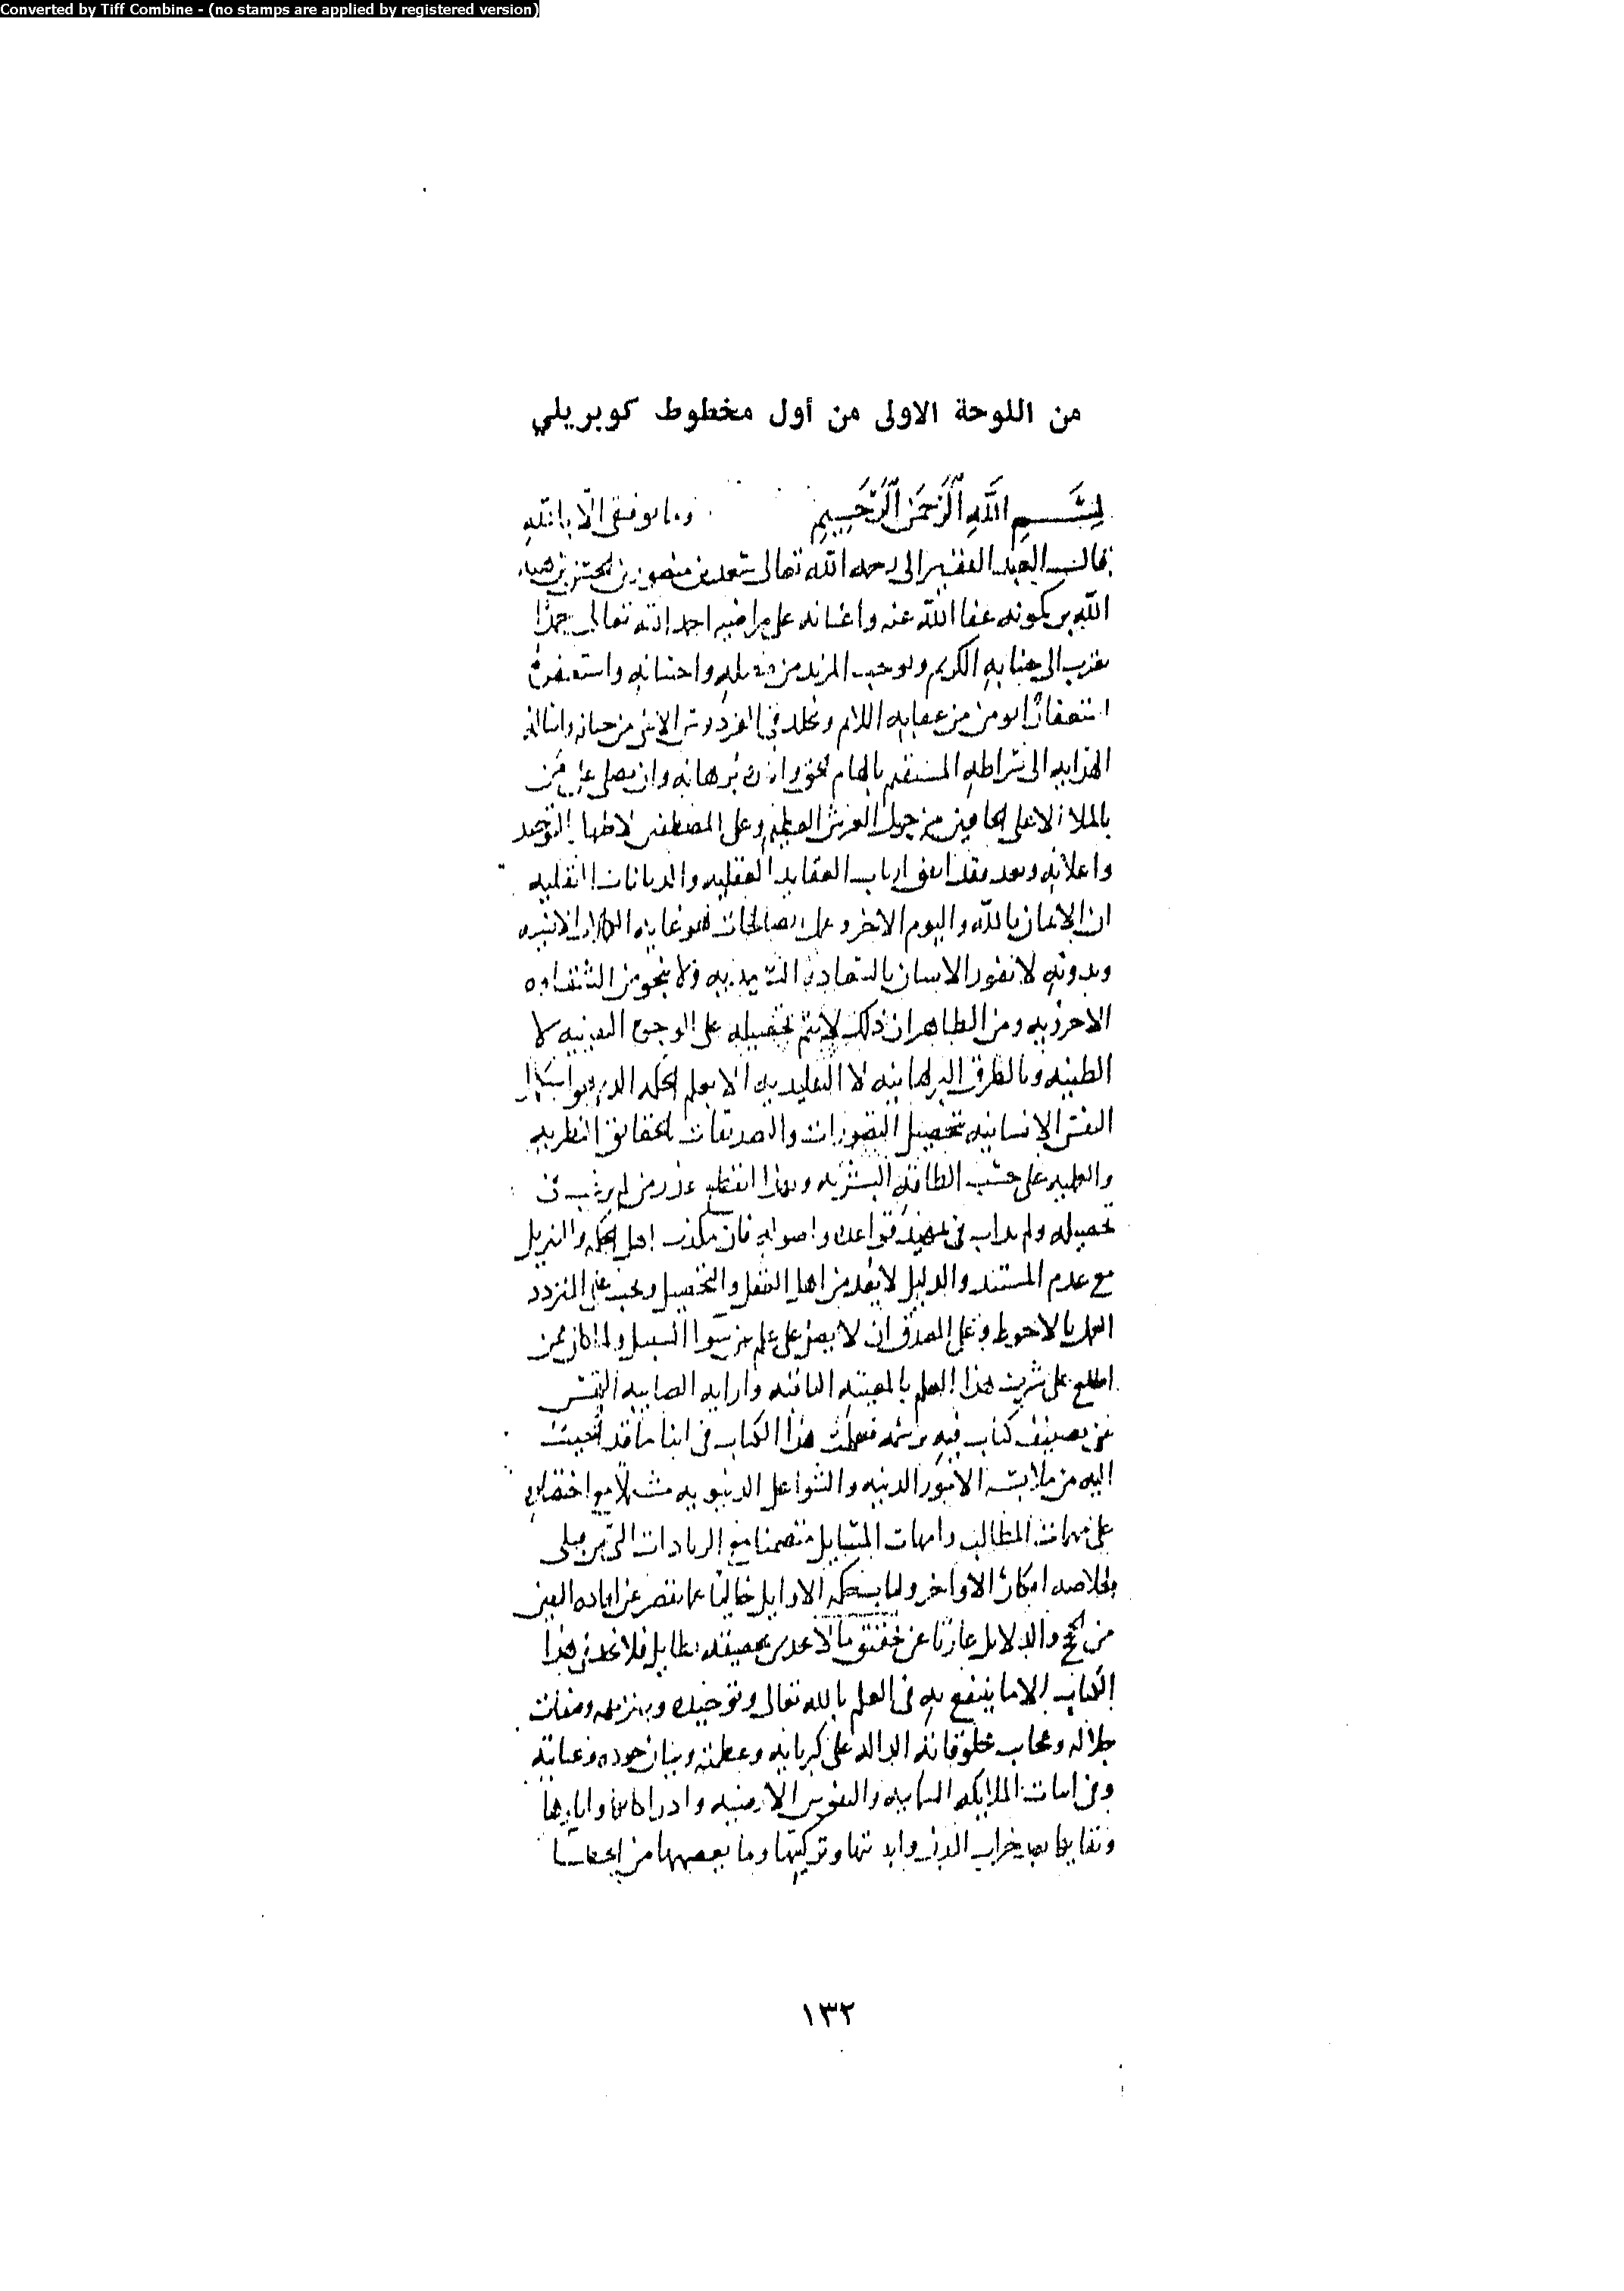 Converted by Tiff Combine - (no stamps are applied by registered version)
من اللوحة الاولى من أول مخطوط كوبريلي
بِسْمِ اللَّهِ الرَّحْمَنِ الرَّحِيمِ وما توفيقى الا بالله
قال العبد الفقير الى رحمه الله تعالى سعد بن منصور بن الحسن بن هبة
الله بن كمونه عفا الله عنه واعانه على مراضيه احمد الله تعالى حمدًا
يقرب الى جنابه الكريم ويوجب المزيد من فضله واحسانه واستغفره
استغفارًا يومن من عقابه الاليم ويخلد فى الفردوس من جنانه
الهدايه الى صراطه المستقيم بالهام الحق وبرهانه وان يصلى على من
بالملا الاعلى الحافين من حول العرش العظيم وعلى المصطفين لاظهار التوحيد
واعلانه وبعد فقد اتفق ارباب العقايد العقليه والديانات النقليه
ان الايمان بالله واليوم الاخر وعمل الصالحات هو غايه الكمالات الانسيه
وبدونه لا يفوز الانسان بالسعاده السرمديه ولا ينجو من الشقاوه
الاخرويه ومن الظاهر ان ذلك لا يتم تحصيله على الوجوه اليقينيه لا
الظنيه وبالطرق البرهانيه لا التقليديه الا بعلم الحكمه الذى هو استكمال
النفس الانسانيه بتحصيل التصورات والتصديقات بالحقايق النظريه
والعمليه على حسب الطاقه البشريه وبهذا انقطع عذر من لم يرغب فى
تحصيله ولم يداب فى تمهيد قواعده واصوله فان مكذب اهل الحكمه والتنزيل
مع عدم المستند والدليل لا يعد من اهل العقل والتحصيل ويجب على المتردد
العمل بالاحوط وعلى المصدق ان لا يضل على علم عن سوا السبيل ولما كان ممن
اطلع على شرف هذا العلم بالمعيته الثاقبه وارايه الصايبه التمس
منى تصنيف كتاب فيه برسمه فعملت هذا الكتاب فى اثنا ما قد الجيت
اليه من ملابسة الامور الدنيه والشواغل الدنيويه مشتملاً مع اختصاره
على مهمات المطالب وامهات المسايل متضمنا مع الزيادات التى من قبلى
خلاصه افكار الاواخر ولباب حكمه الاوايل خاليًا عما يقصر عن افاده اليقين
من الحجج والدلايل عاريًا عن تحقيق ما لا تحقيقه بطايل فلا هذا
الكتاب الا ما ينتفع به فى العلم بالله تعالى وتوحيده وتنزيهه وصفات
جلاله وعجايب مخلوقاته الداله على كبريايه وعظمته وبيان جوده وعنايته
وفى اثبات الملايكه السماييه والنفوس الارضيه وادراكاتها واثارها
وبقايها بعد خراب البدن وابديتها وتركيبها وما
١٣٢